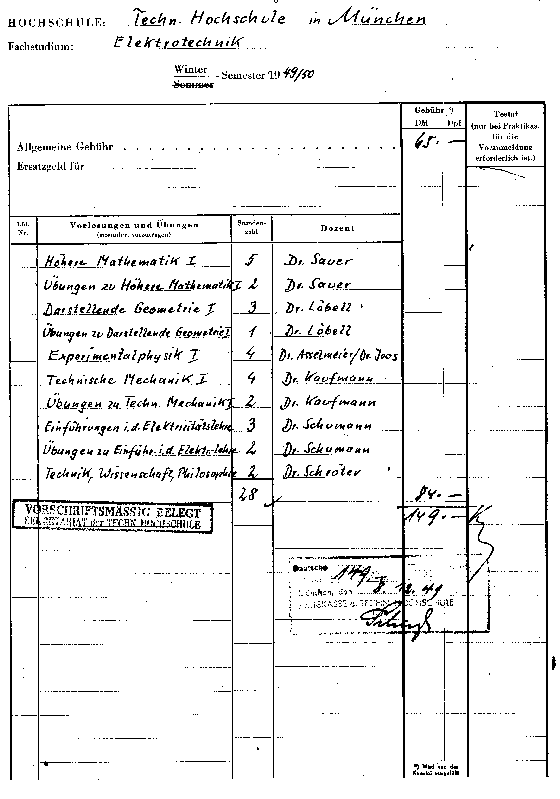 HOCHSCHULE: Techn. Hochschule in München
Fachstudium: Elektrotechnik
Winter
Sommer - Semester 1949/50
Gebühr *)
DM Dpf
Testat
(nur bei Praktikas,
für die
Voranmeldung
erforderlich ist.)
Allgemeine Gebühr 65.—
Ersatzgeld für
Lfd. Nr. Vorlesungen und Übungen Stundenzahl Dozent
Höhere Mathematik I 5 Dr. Sauer
Übungen zu Höhere Mathematik I 2 Dr. Sauer
Darstellende Geometrie I 3 Dr. Löbell
Übungen zu Darstellende Geometrie I 1 Dr. Löbell
Experimentalphysik I 4 Dr. Asselmeier/Dr. Joos
Technische Mechanik I 4 Dr. Kaufmann
Übungen zu Techn. Mechanik I 2 Dr. Kaufmann
Einführungen i.d. Elektrizitätslehre 3 Dr. Schumann
Übungen zu Einführ. i.d. Elektr.lehre 2 Dr. Schumann
Technik, Wissenschaft, Philosophie 2 Dr. Schröter
28 84.—
VORSCHRIFTSMÄSSIG BELEGT 149.—
SEKRETARIAT der TECHN. HOCHSCHULE
Deutsche 149
München, den 8.12.49
HOCHSCHULE
*) Wird von der